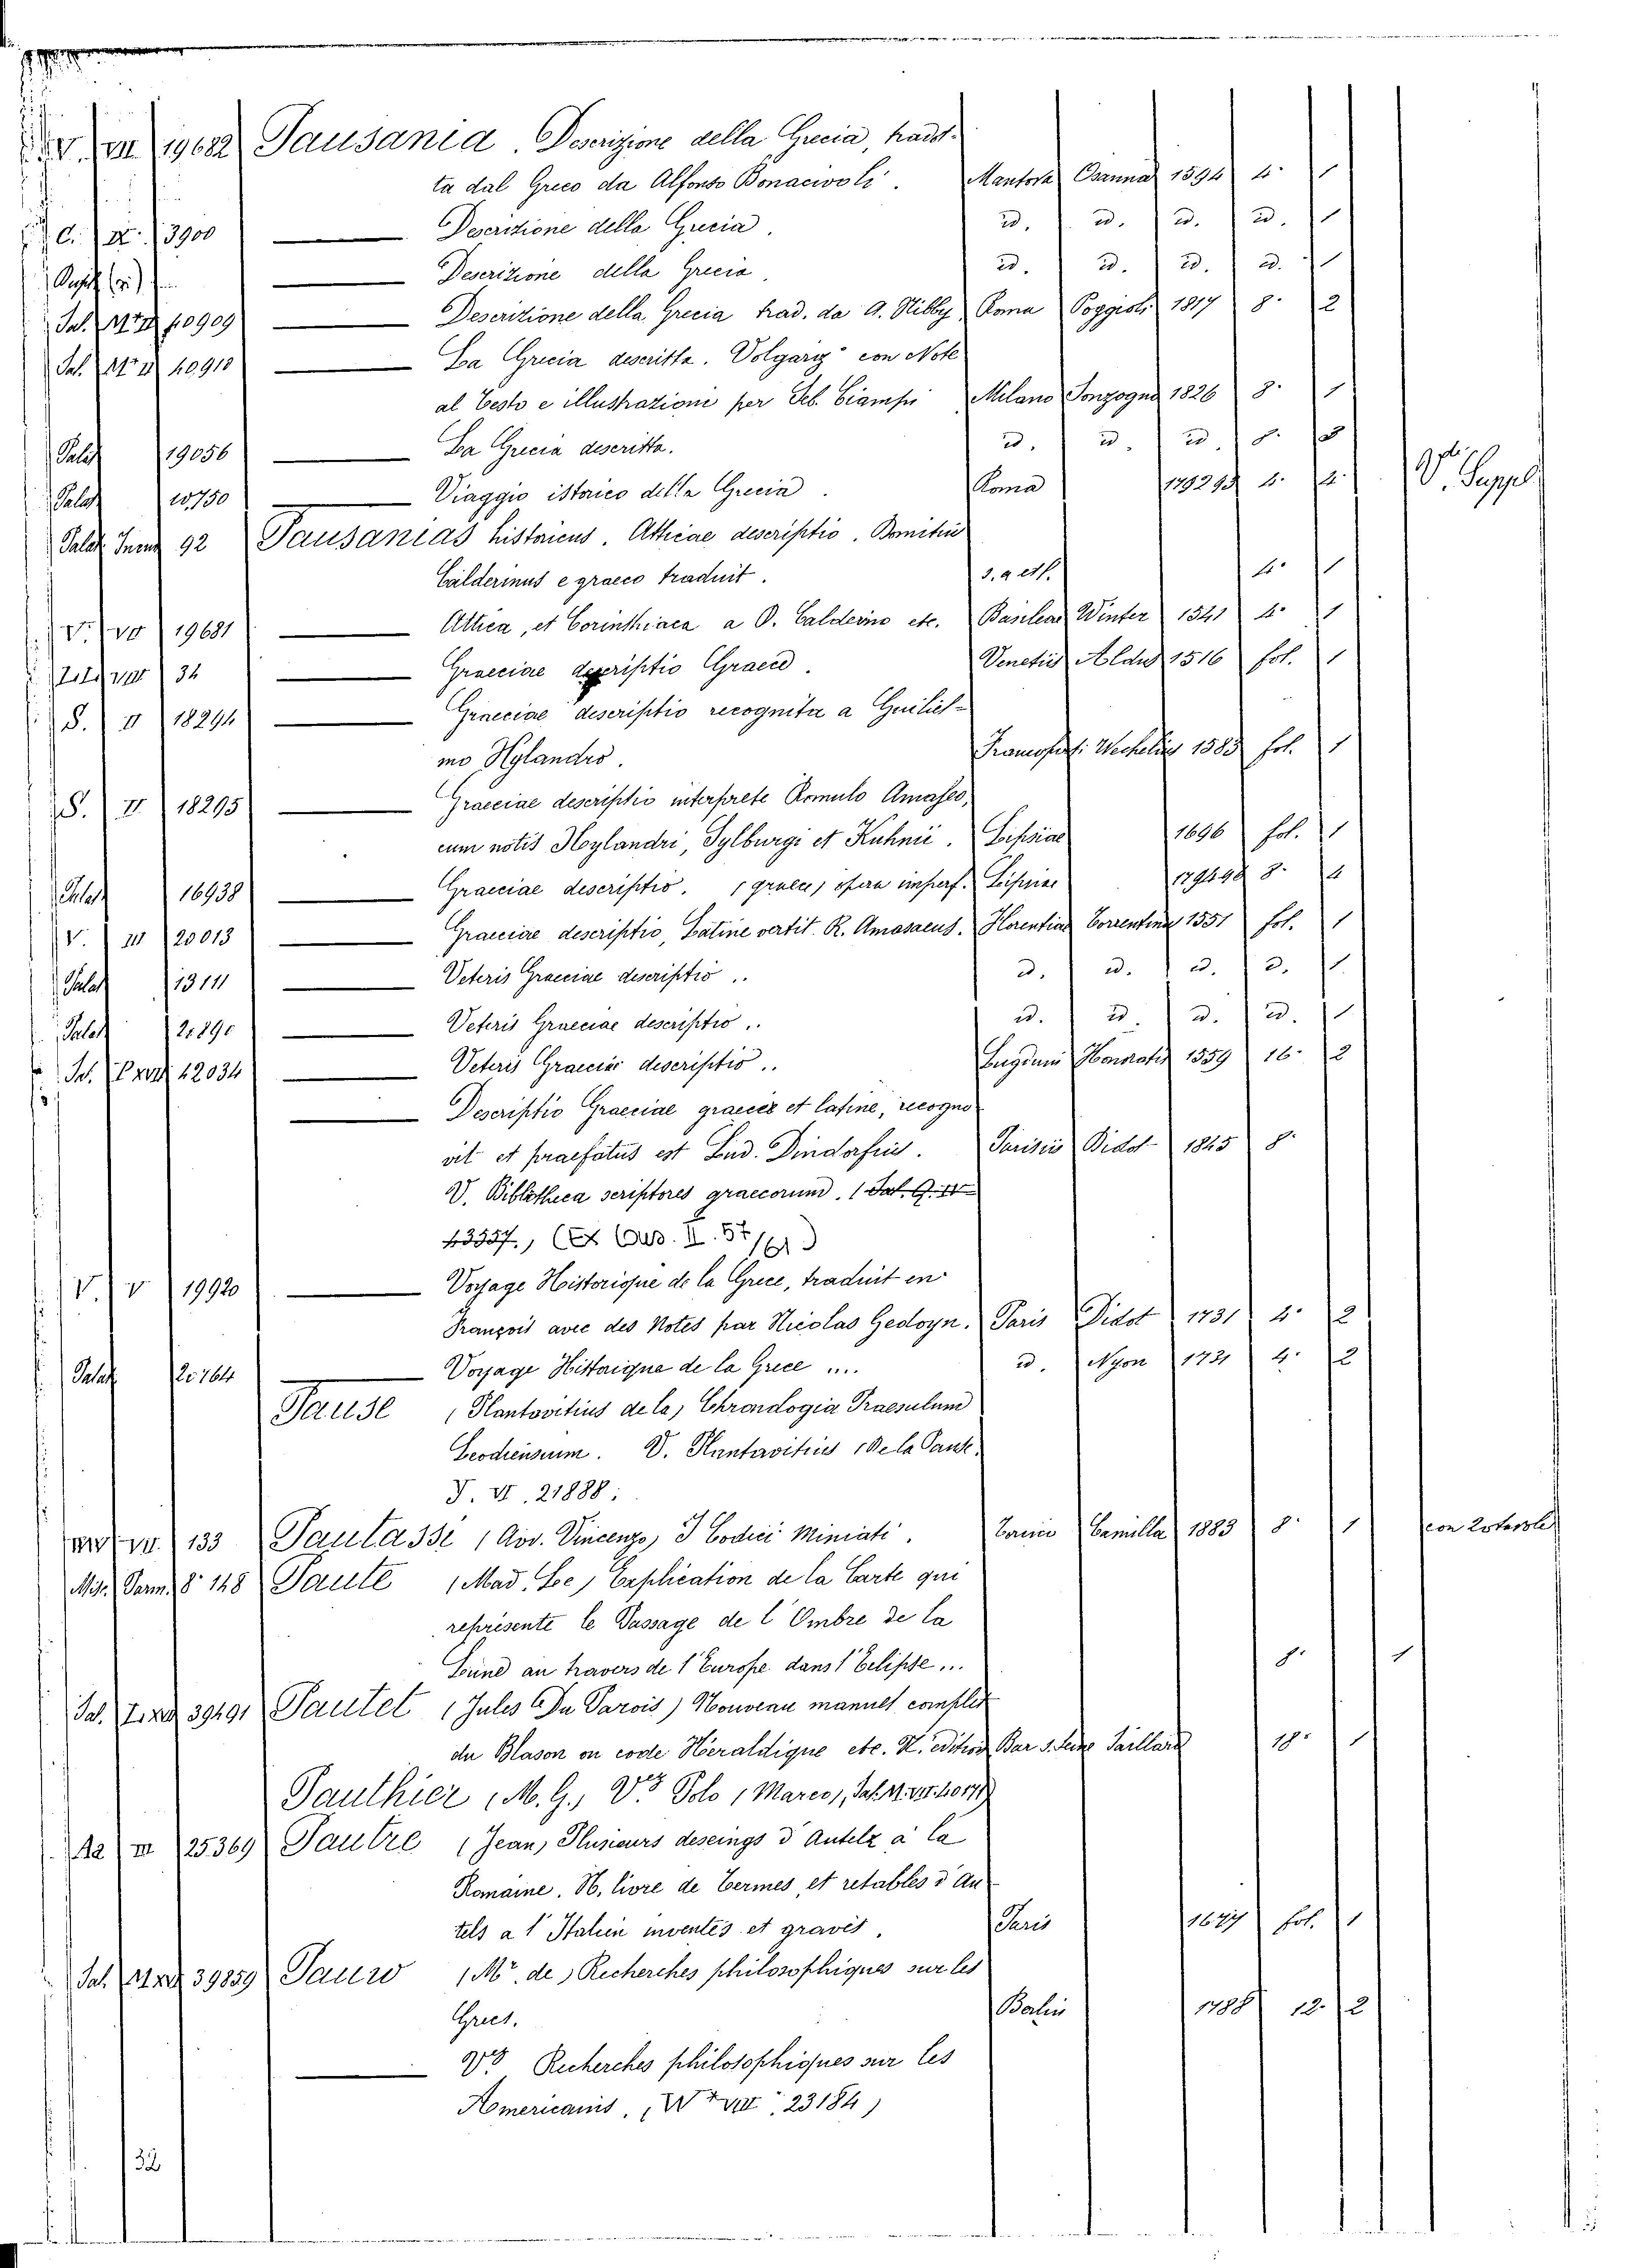 V. VII. 19682 Pausania. Descrizione della Grecia, tradot-
ta dal Greco da Alfonso Bonacivoli. Mantova Osanna 1594 4. 1
C. IX. 3900 — Descrizione della Grecia. id. id. id. id. 1
— Descrizione della Grecia. id. id. id. id. 1
Sal. 40909 — Descrizione della Grecia trad. da A. Nibby Roma Poggioli 1817 8. 2
Sal. 40910 — La Grecia descritta. Volgariz.e con Note
al Testo e illustrazioni per Seb. Ciampi Milano Sonzogno 1826 8. 1
Palat 19056 — La Grecia descritta. id. id. id. 8.
Palat 10,750 — Viaggio istorico della Grecia. Roma 4. V. Suppl.
Palat. 92 Pausanias historicus. Atticae descriptio. Domitius
Calderinus e graeco traduit. 4. 1
V. VII 19681 — Attica, et Corinthiaca a D. Calderino etc. Basileae Winter 1541 4. 1
34 — Graeciae descriptio Graece. Venetiis Aldus 1516 fol. 1
S. II 18294 — Graeciae descriptio recognita a Guiliel-
mo Xylandro. Wechelius 1583 fol. 1
S. II 18295 — Graeciae descriptio interprete Romulo Amaseo,
cum notis Xoylandri, Sylburgi et Kuhnii. Lipsiae 1696 fol. 1
Palat 16938 — Graeciae descriptio. (graece) opera imperf. Lipsiae 8. 4
V. III 20013 — Graeciae descriptio, Latine vertit R. Amasaeus. Florentiae Torrentinus 1551 fol. 1
Palat 13111 — Veteris Graeciae descriptio.. id. id. id. id. 1
Palat — Veteris Graeciae descriptio.. id. id. id. id. 1
42034 — Veteris Graeciae descriptio.. Lugduni Honoratus 1559 16. 2
— Descriptio Graeciae graece et latine, recogno-
vit et praefatus est Lud. Dindorfius. Parisiis Didot 1845 8.
V. Bibliotheca scriptores graecorum. (Sal. Q. II
43357., (Ex Cus. II. 57/61)
V. V 19920 — Voyage Historique de la Grece, traduit en
François avec des Notes par Nicolas Gedoyn. Paris Didot 1731 4. 2
Palat 20764 — Voyage Historique de la Grece .... id. Nyon 1731 4. 2
Pause (Plantavitius de la) Chronologia Praesulum
Leodiensium. V. Plantavitius (De la Pause.
J. VI. 21888.
VII. 133 Pautassi (Avv. Vincenzo) I Codici Miniati. Torino Camilla 1883 8. 1
Mis. Parm. 8. 148 Paute (Mad. Le) Explication de la Carte qui
représente le Passage de l'Ombre de la
Lune au travers de l'Europe dans l'Eclipse... 8. 1
Sal. 39491 Pautet (Jules Du Parois) Nouveau manuel complet
du Blason ou code Héraldique etc. N. edition Bar s. Seine Saillard 18. 1
Pauthier (M. G.) V.o Polo (Marco),
Aa III 25369 Pautre (Jean) Plusieurs desseings d'Autelz à la
Romaine. N. livre de Termes, et retables d'Au-
tels a l'Italien inventés et gravés. Paris 1677 fol. 1
Sal. 39859 Pauw (Mr. de) Recherches philosophiques sur les
Grecs. Berlin 1788 12. 2
— V.o Recherches philosophiques sur les
Americains. (W VIII. 23184)
32